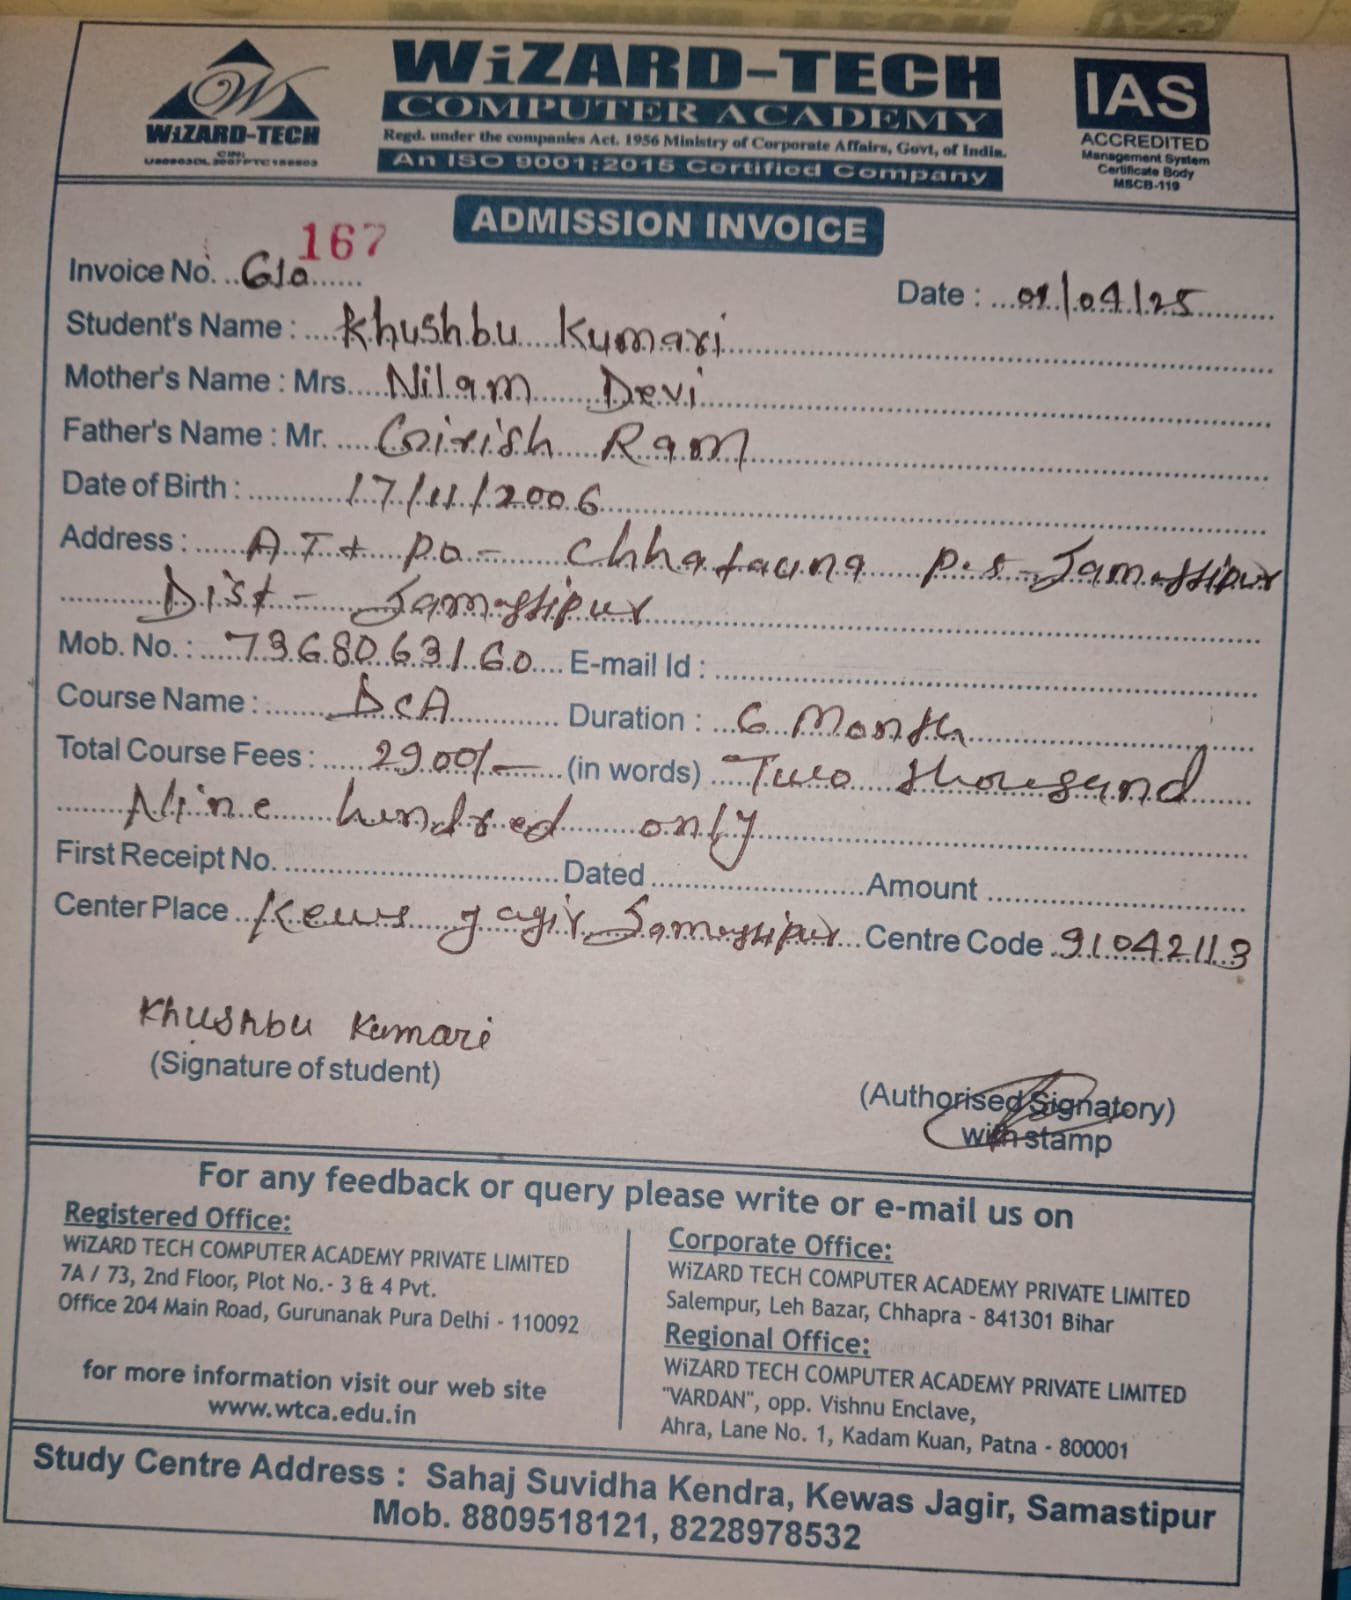 WiZARD-TECH
COMPUTER ACADEMY
Regd. under the companies Act. 1956 Ministry of Corporate Affairs, Govt, of India.
An ISO 9001:2015 Certified Company
WiZARD-TECH
CIN:
IAS
ACCREDITED
Management System
Certificate Body
MSCB-119
ADMISSION INVOICE
167
Invoice No. 610
Date : 01/04/25
Student's Name : Khushbu Kumari
Mother's Name : Mrs. Nilam Devi
Father's Name : Mr. Girish Ram
Date of Birth : 17/11/2006
Address : AT+ Po - Chhatauna P.S - Samastipur
Dist - Samastipur
Mob. No. : 7368063160 E-mail Id :
Course Name : DCA Duration : 6 Month
Total Course Fees : 2900/- (in words) Two thousand
Nine hundred only
First Receipt No. Dated Amount
Center Place Kews Jagir Samastipur Centre Code 91042113
Khushbu Kumari
(Signature of student)
(Authorised Signatory)
with stamp
For any feedback or query please write or e-mail us on
Registered Office:
WiZARD TECH COMPUTER ACADEMY PRIVATE LIMITED
7A / 73, 2nd Floor, Plot No.- 3 & 4 Pvt.
Office 204 Main Road, Gurunanak Pura Delhi - 110092
for more information visit our web site
www.wtca.edu.in
Corporate Office:
WiZARD TECH COMPUTER ACADEMY PRIVATE LIMITED
Salempur, Leh Bazar, Chhapra - 841301 Bihar
Regional Office:
WiZARD TECH COMPUTER ACADEMY PRIVATE LIMITED
"VARDAN", opp. Vishnu Enclave,
Ahra, Lane No. 1, Kadam Kuan, Patna - 800001
Study Centre Address : Sahaj Suvidha Kendra, Kewas Jagir, Samastipur
Mob. 8809518121, 8228978532